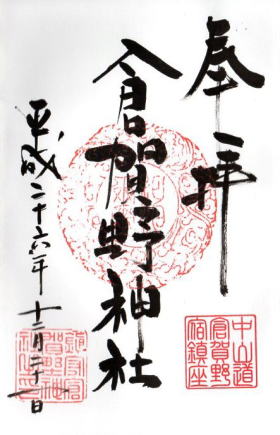 奉拝
中山道
倉賀野
宿鎮座
倉賀野神社
平成二十六年十二月二十一日